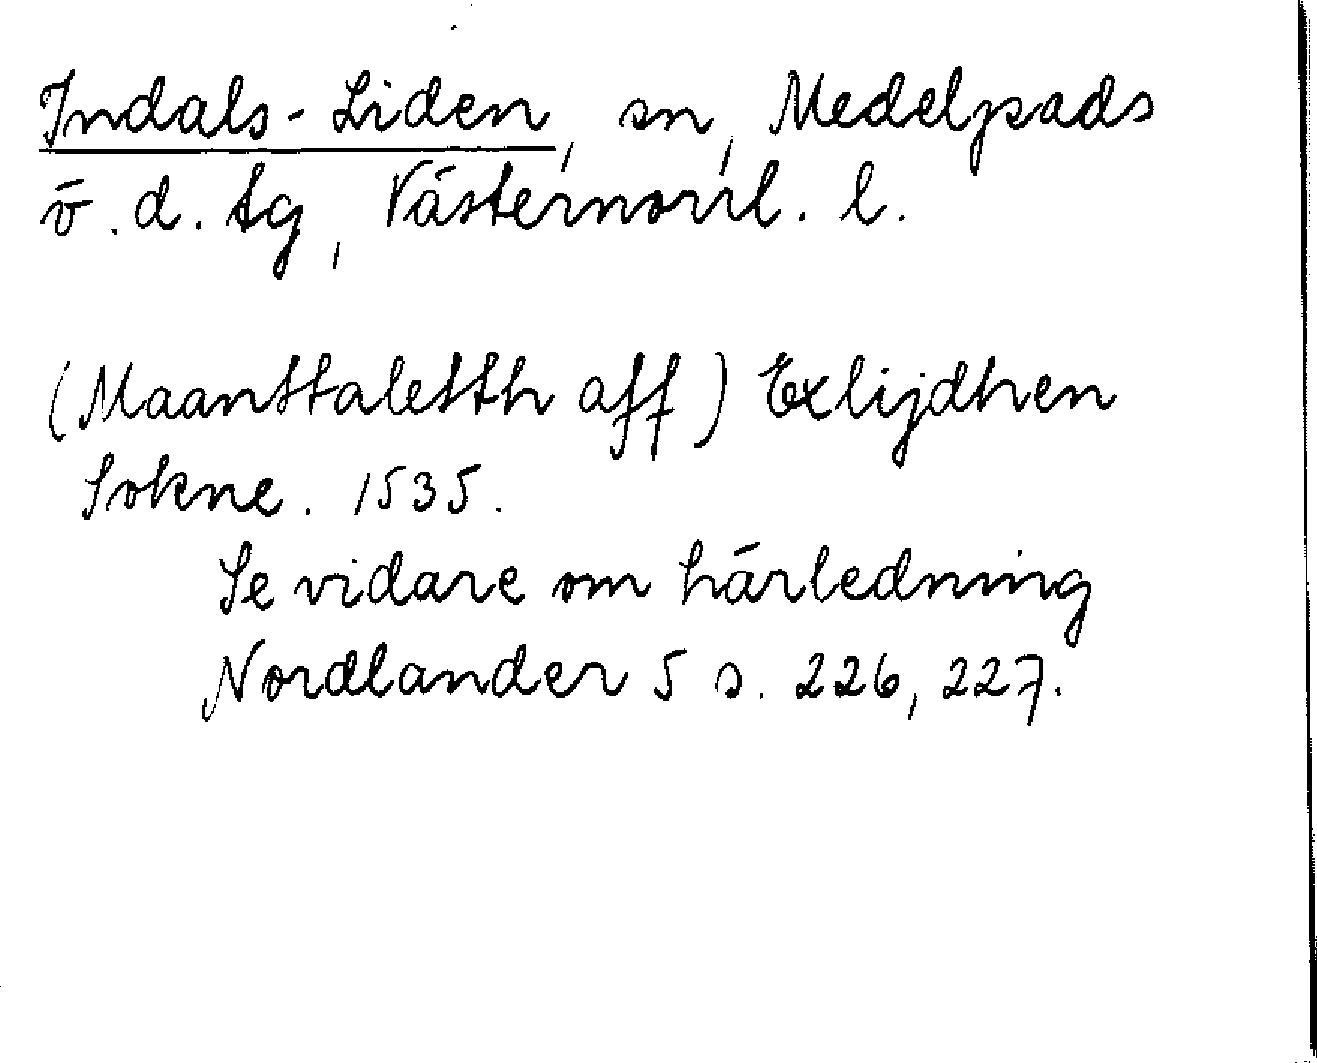 Indals-Liden, sn, Medelpads
v. d. tg, Västernorrl. l.
(Maanttaletth aff) Exlijdhen
Sokne. 1535.
Se vidare om härledning
Nordlander 5 s. 226, 227.